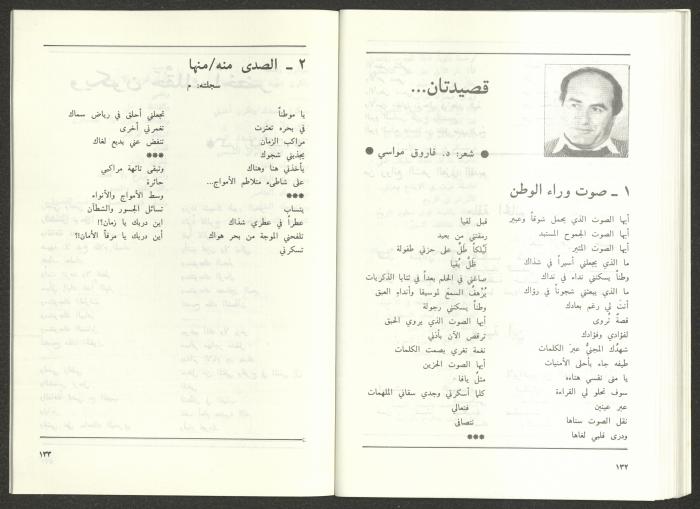 قصيدتان...
● شعر: د. فاروق مواسي ●
١ ـ صوت وراء الوطن
أيها الصوت الذي يحمل شوقاً وعبير
أيها الصوت الجموح المستبد
أيها الصوت المثير
ما الذي يجعلني أسيراً في شذاك
وطناً يسكنني نداء في نداك
ما الذي يبعثني شجوناً في رؤاك
أنت لي رغم بعادك
قصةٌ تُروى
لفؤادي وفؤادك
شهدُك المجنيُّ عبرَ الكلمات
طيفه جاء بأحلى الأمنيات
يا منى نفسي هناءه
سوف نحلو لي القراءة
عبر عينين
نقل الصوت سناها
ودرى قلبي لغاها
قبل لقيا
رمقتني من بعيد
ليْلكاً طلَّ على حزني طفولة
ظلَّ بُقيا
صاغني في الحلم بعداً في ثنايا الذكريات
يُرْهفُ السمعَ لموسيقا وأنداء العبق
وطناً يسكنني رجولة
أيها الصوت الذي يروي الحبق
ترقص الآن بأذني
نغمة تغري بصمت الكلمات
أيها الصوت الحزين
مثلُ يافا
كلما أسكرني وجدي سقاني الملهمات
فتعالي
نتصافى
***
١٣٢
٢ ـ الصدى منه/منها
سجلته: م
يا موطناً
في بحره تعثرت
مراكب الزمان
يجذبني شجوك
يأخذني هنا وهناك
على شاطىء متلاطم الأمواج...
***
ينساب
عطراً في عطري شذاك
تلفحني الموجة من بحر هواك
تسكرني
تجعلني أحلق في رياض سماك
تغمرني أخرى
تنفض عني بديع لغاك
***
وتبقى تائهة مراكبي
حائرة
وسط الأمواج والأنواء
تسائل الجسور والشطآن
اين دربك يا زمان؟!
أين دربك يا مرفأ الأمان؟!
١٣٣